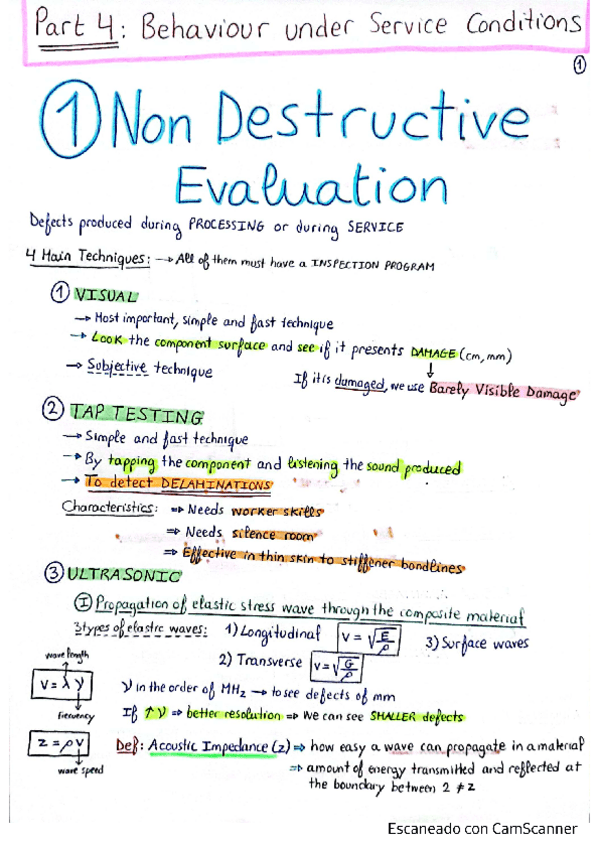 Part 4: Behaviour under Service Conditions
①
① Non Destructive
Evaluation
Defects produced during PROCESSING or during SERVICE
4 Main Techniques: → All of them must have a INSPECTION PROGRAM
① VISUAL
→ Most important, simple and fast technique
→ Look the component surface and see if it presents DAMAGE (cm, mm)
→ Subjective technique
If it is damaged, we use Barely Visible Damage
② TAP TESTING
→ Simple and fast technique
→ By tapping the component and listening the sound produced
→ To detect DELAMINATIONS
Characteristics: ⇒ Needs worker skills
⇒ Needs silence room
⇒ Effective in thin skin to stiffener bondlines
③ ULTRASONIC
Ⓘ Propagation of elastic stress wave through the composite material
3 types of elastic waves: 1) Longitudinal V = √(E/ρ) 3) Surface waves
2) Transverse V = √(G/ρ)
wave length
V = λ ν
frecuency
ν in the order of MHz → to see defects of mm
If ↑ ν ⇒ better resolution ⇒ We can see SMALLER defects
z = ρ v
wave speed
Def: Acoustic Impedance (z) ⇒ how easy a wave can propagate in a material
⇒ amount of energy transmitted and reflected at
the boundary between 2 ≠ z
Escaneado con CamScanner